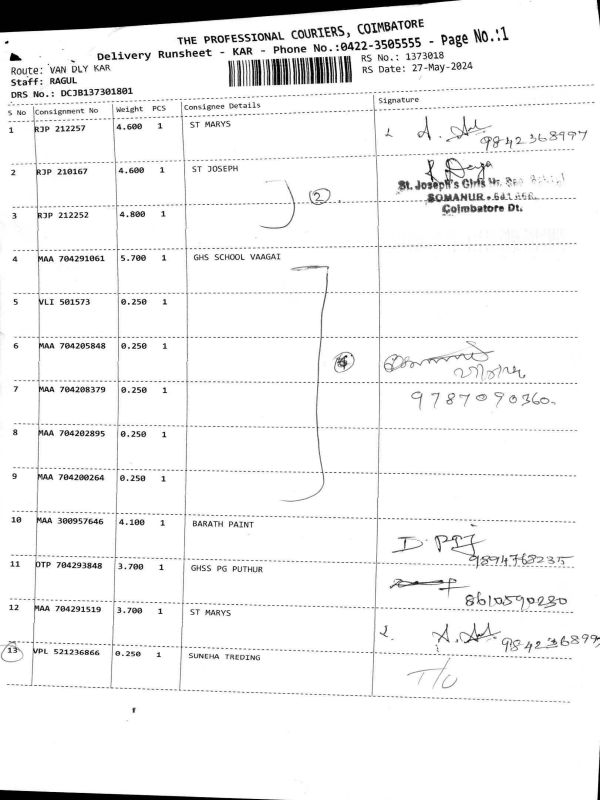 THE PROFESSIONAL COURIERS, COIMBATORE
Delivery Runsheet - KAR - Phone No.:0422-3505555 - Page No.:1
Route: VAN DLY KAR
RS No.: 1373018
Staff: RAGUL
RS Date: 27-May-2024
DRS No.: DCJB137301801
S No Consignment No Weight PCS Consignee Details Signature
1 RJP 212257 4.600 1 ST MARYS
9842368997
2 RJP 210167 4.600 1 ST JOSEPH
St. Joseph's Girls Hr.
SOMANUR
Coimbatore Dt.
2
3 RJP 212252 4.800 1
4 MAA 704291061 5.700 1 GHS SCHOOL VAAGAI
5 VLI 501573 0.250 1
6 MAA 704205848 0.250 1
7 MAA 704208379 0.250 1
9787090360
8 MAA 704202895 0.250 1
9 MAA 704200264 0.250 1
10 MAA 300957646 4.100 1 BARATH PAINT
9894768235
11 OTP 704293848 3.700 1 GHSS PG PUTHUR
8610590230
12 MAA 704291519 3.700 1 ST MARYS
984236899
13 VPL 521236866 0.250 1 SUNEHA TREDING
T/U